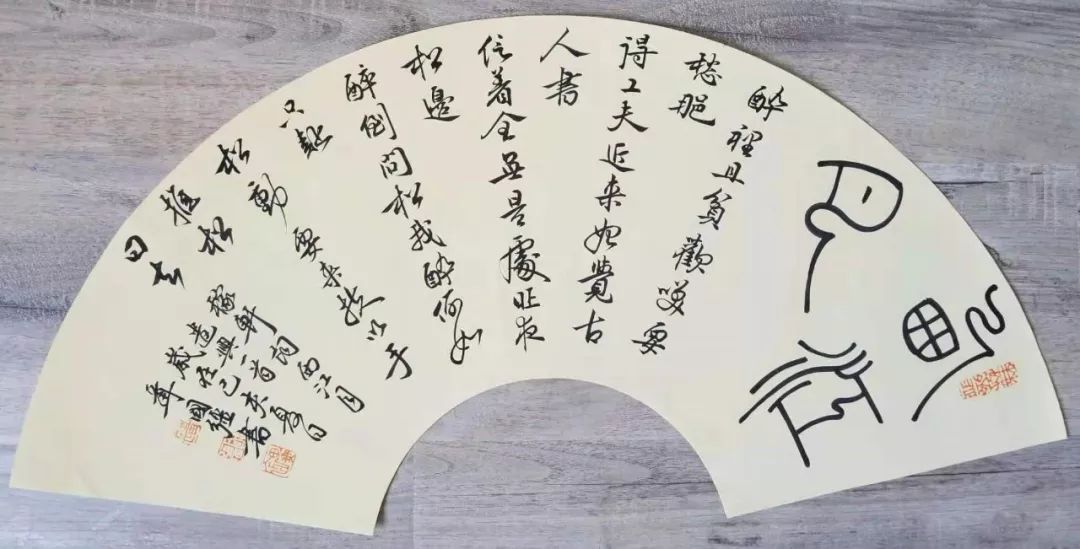 醉裡且貪歡笑要
愁那
得工夫近来始覺古
人書
信着全無是處昨夜
松邊
醉倒問松我醉何如
只疑
松動要来扶以手
推松
松曰去
稼軒詞西江月
遣興一首
歲在己亥夏日
國強書